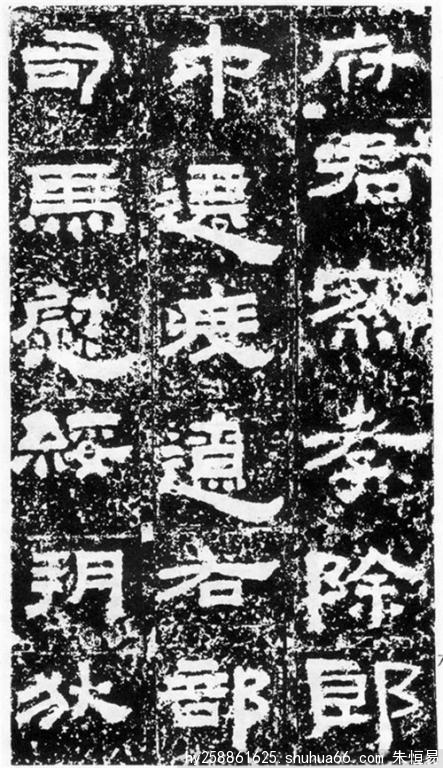 府君察孝除郎
中遷度遼右部
司馬慰綏朔狄
hy258861625.shuhua66.com 朱恒易